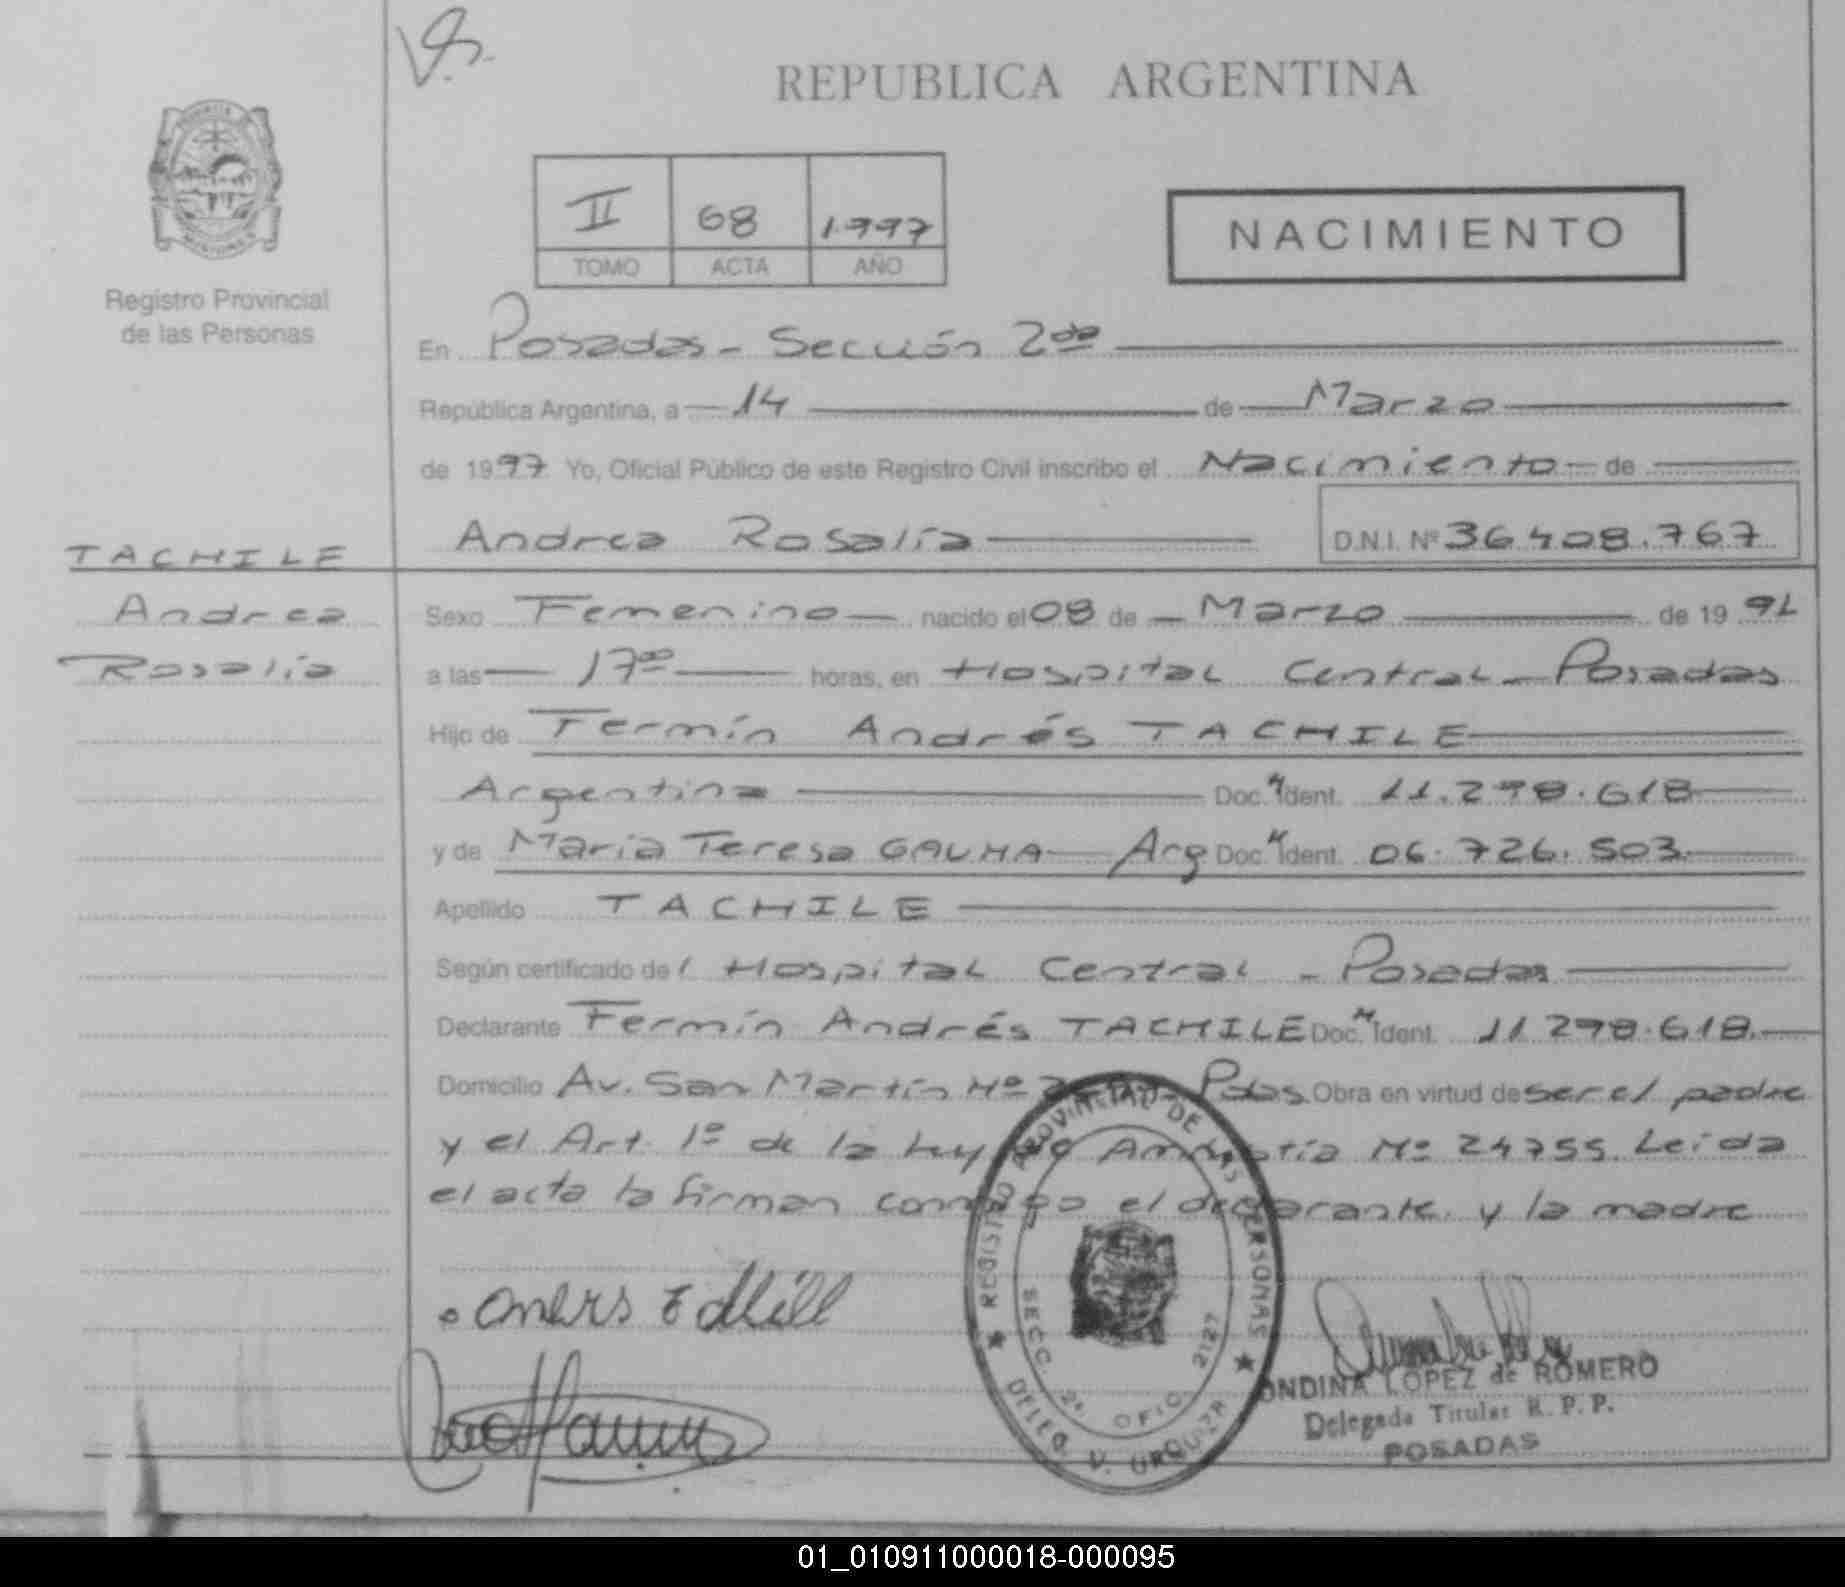 REPUBLICA ARGENTINA
II 68 1997
TOMO ACTA AÑO
NACIMIENTO
Registro Provincial
de las Personas
En Posadas - Sección 2da
República Argentina, a 14 de Marzo
de 1997 Yo, Oficial Público de este Registro Civil inscribo el Nacimiento de
Andrea Rosalía D.N.I. Nº 36.408.767
TACHILE
Andrea
Rosalía
Sexo Femenino nacido el 08 de Marzo de 19 91
a las 17 00 horas, en Hospital Central - Posadas
Hijo de Fermín Andrés TACHILE
Argentina Doc. Ident. 11.298.618
y de María Teresa GAUNA Arg Doc. Ident. 06.726.503
Apellido TACHILE
Según certificado del Hospital Central - Posadas
Declarante Fermín Andrés TACHILE Doc. Ident. 11.298.618
Domicilio Av. San Martín Nº Pdas. Obra en virtud de ser el padre
y el Art. 1º de la Ley de Amnistía Nº 24755. Leida
el acta la firman conmigo el declarante y la madre
REGISTRO PROVINCIAL DE LAS PERSONAS
SECC. 2a. OFIC. 2127
DELEG. V. URQUIZA
ONDINA LOPEZ de ROMERO
Delegada Titular R. P. P.
POSADAS
01_010911000018-000095